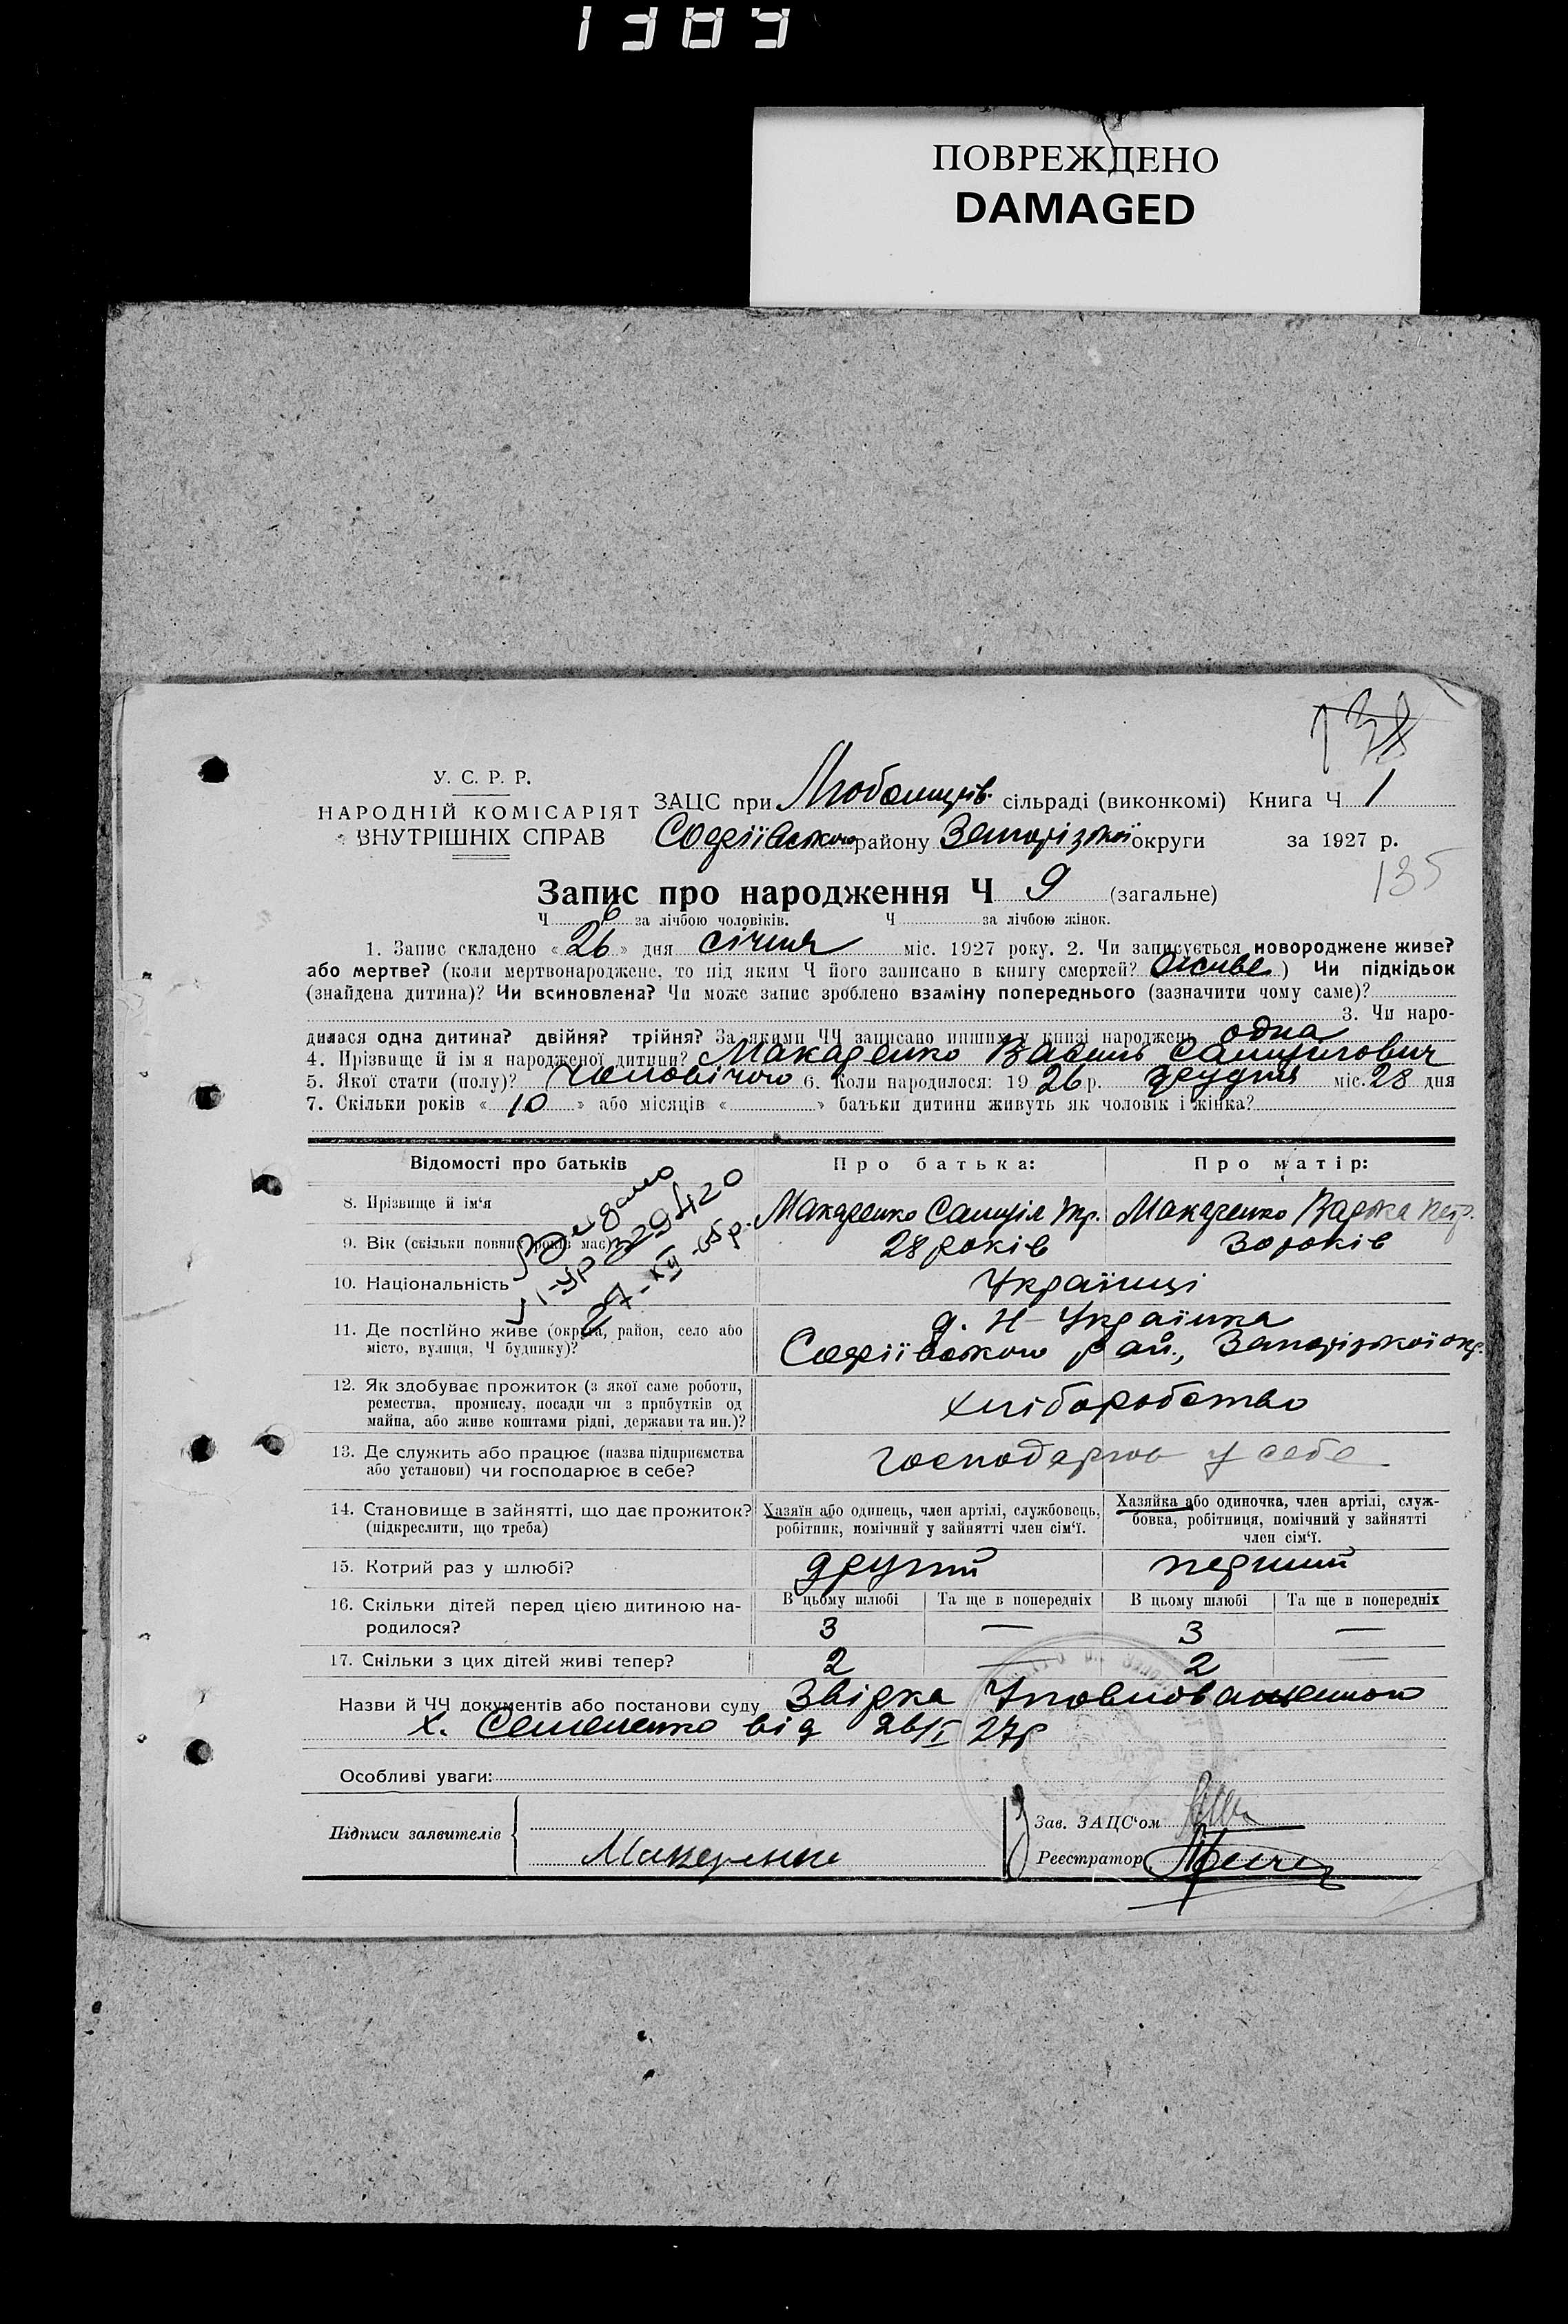 1389
ПОВРЕЖДЕНО
DAMAGED
138
У. С. Р. Р.
НАРОДНІЙ КОМІСАРІЯТ
ВНУТРІШНІХ СПРАВ
ЗАЦС при сільраді (виконкомі) Книга Ч 1
Софіївського району Запорізької округи за 1927 р.
135
Запис про народження Ч 9 (загальне)
Ч 6 за лічбою чоловіків. Ч за лічбою жінок.
1. Запис складено «26» дня січня міс. 1927 року. 2. Чи записується новороджене живе?
або мертве? (коли мертвонароджене, то під яким Ч його записано в книгу смертей? живе) Чи підкідьок
(знайдена дитина)? Чи всиновлена? Чи може запис зроблено взаміну попереднього (зазначити чому саме)?
3. Чи наро-
дилася одна дитина? двійня? трійня? За якими ЧЧ записано инших у книзі народжень одна
4. Прізвище й ім'я народженої дитини? Макаренко Василь Самійлович
5. Якої стати (полу)? Чоловічого 6. Коли народилося: 1926 р. грудня міс. 28 дня
7. Скільки років «10» або місяців « » батьки дитини живуть як чоловік і жінка?
Відомості про батьків Про батька: Про матір:
8. Прізвище й ім'я Макаренко Самійл Макаренко Варка Петр.
9. Вік (скільки повних років має)? 28 років 30 років
Видано
УР 329420
27-XII-65р.
10. Національність Українці
11. Де постійно живе (округа, район, село або
місто, вулиця, Ч будинку)?
д. Н-Українка
Софіївського рай., Запорізької окр.
12. Як здобуває прожиток (з якої саме роботи,
ремества, промислу, посади чи з прибутків од
майна, або живе коштами рідні, держави та ин.)?
хліборобство
13. Де служить або працює (назва підприємства
або установи) чи господарює в себе?
господарює у себе
14. Становище в зайнятті, що дає прожиток?
(підкреслити, що треба)
Хазяїн або одинець, член артілі, службовець,
робітник, помічний у зайнятті член сім'ї.
Хазяйка або одиночка, член артілі, служ-
бовка, робітниця, помічний у зайнятті
член сім'ї.
15. Котрий раз у шлюбі? другий перший
16. Скільки дітей перед цією дитиною на-
родилося?
В цьому шлюбі Та ще в попередніх В цьому шлюбі Та ще в попередніх
3 — 3 —
17. Скільки з цих дітей живі тепер? 2 — 2 —
Назви й ЧЧ документів або постанови суду Звірка Уповноваженного
х. Семененко від 26/I 27р
Особливі уваги:
Підписи заявителів
Макаренко
Зав. ЗАЦС'ом
Реєстратор